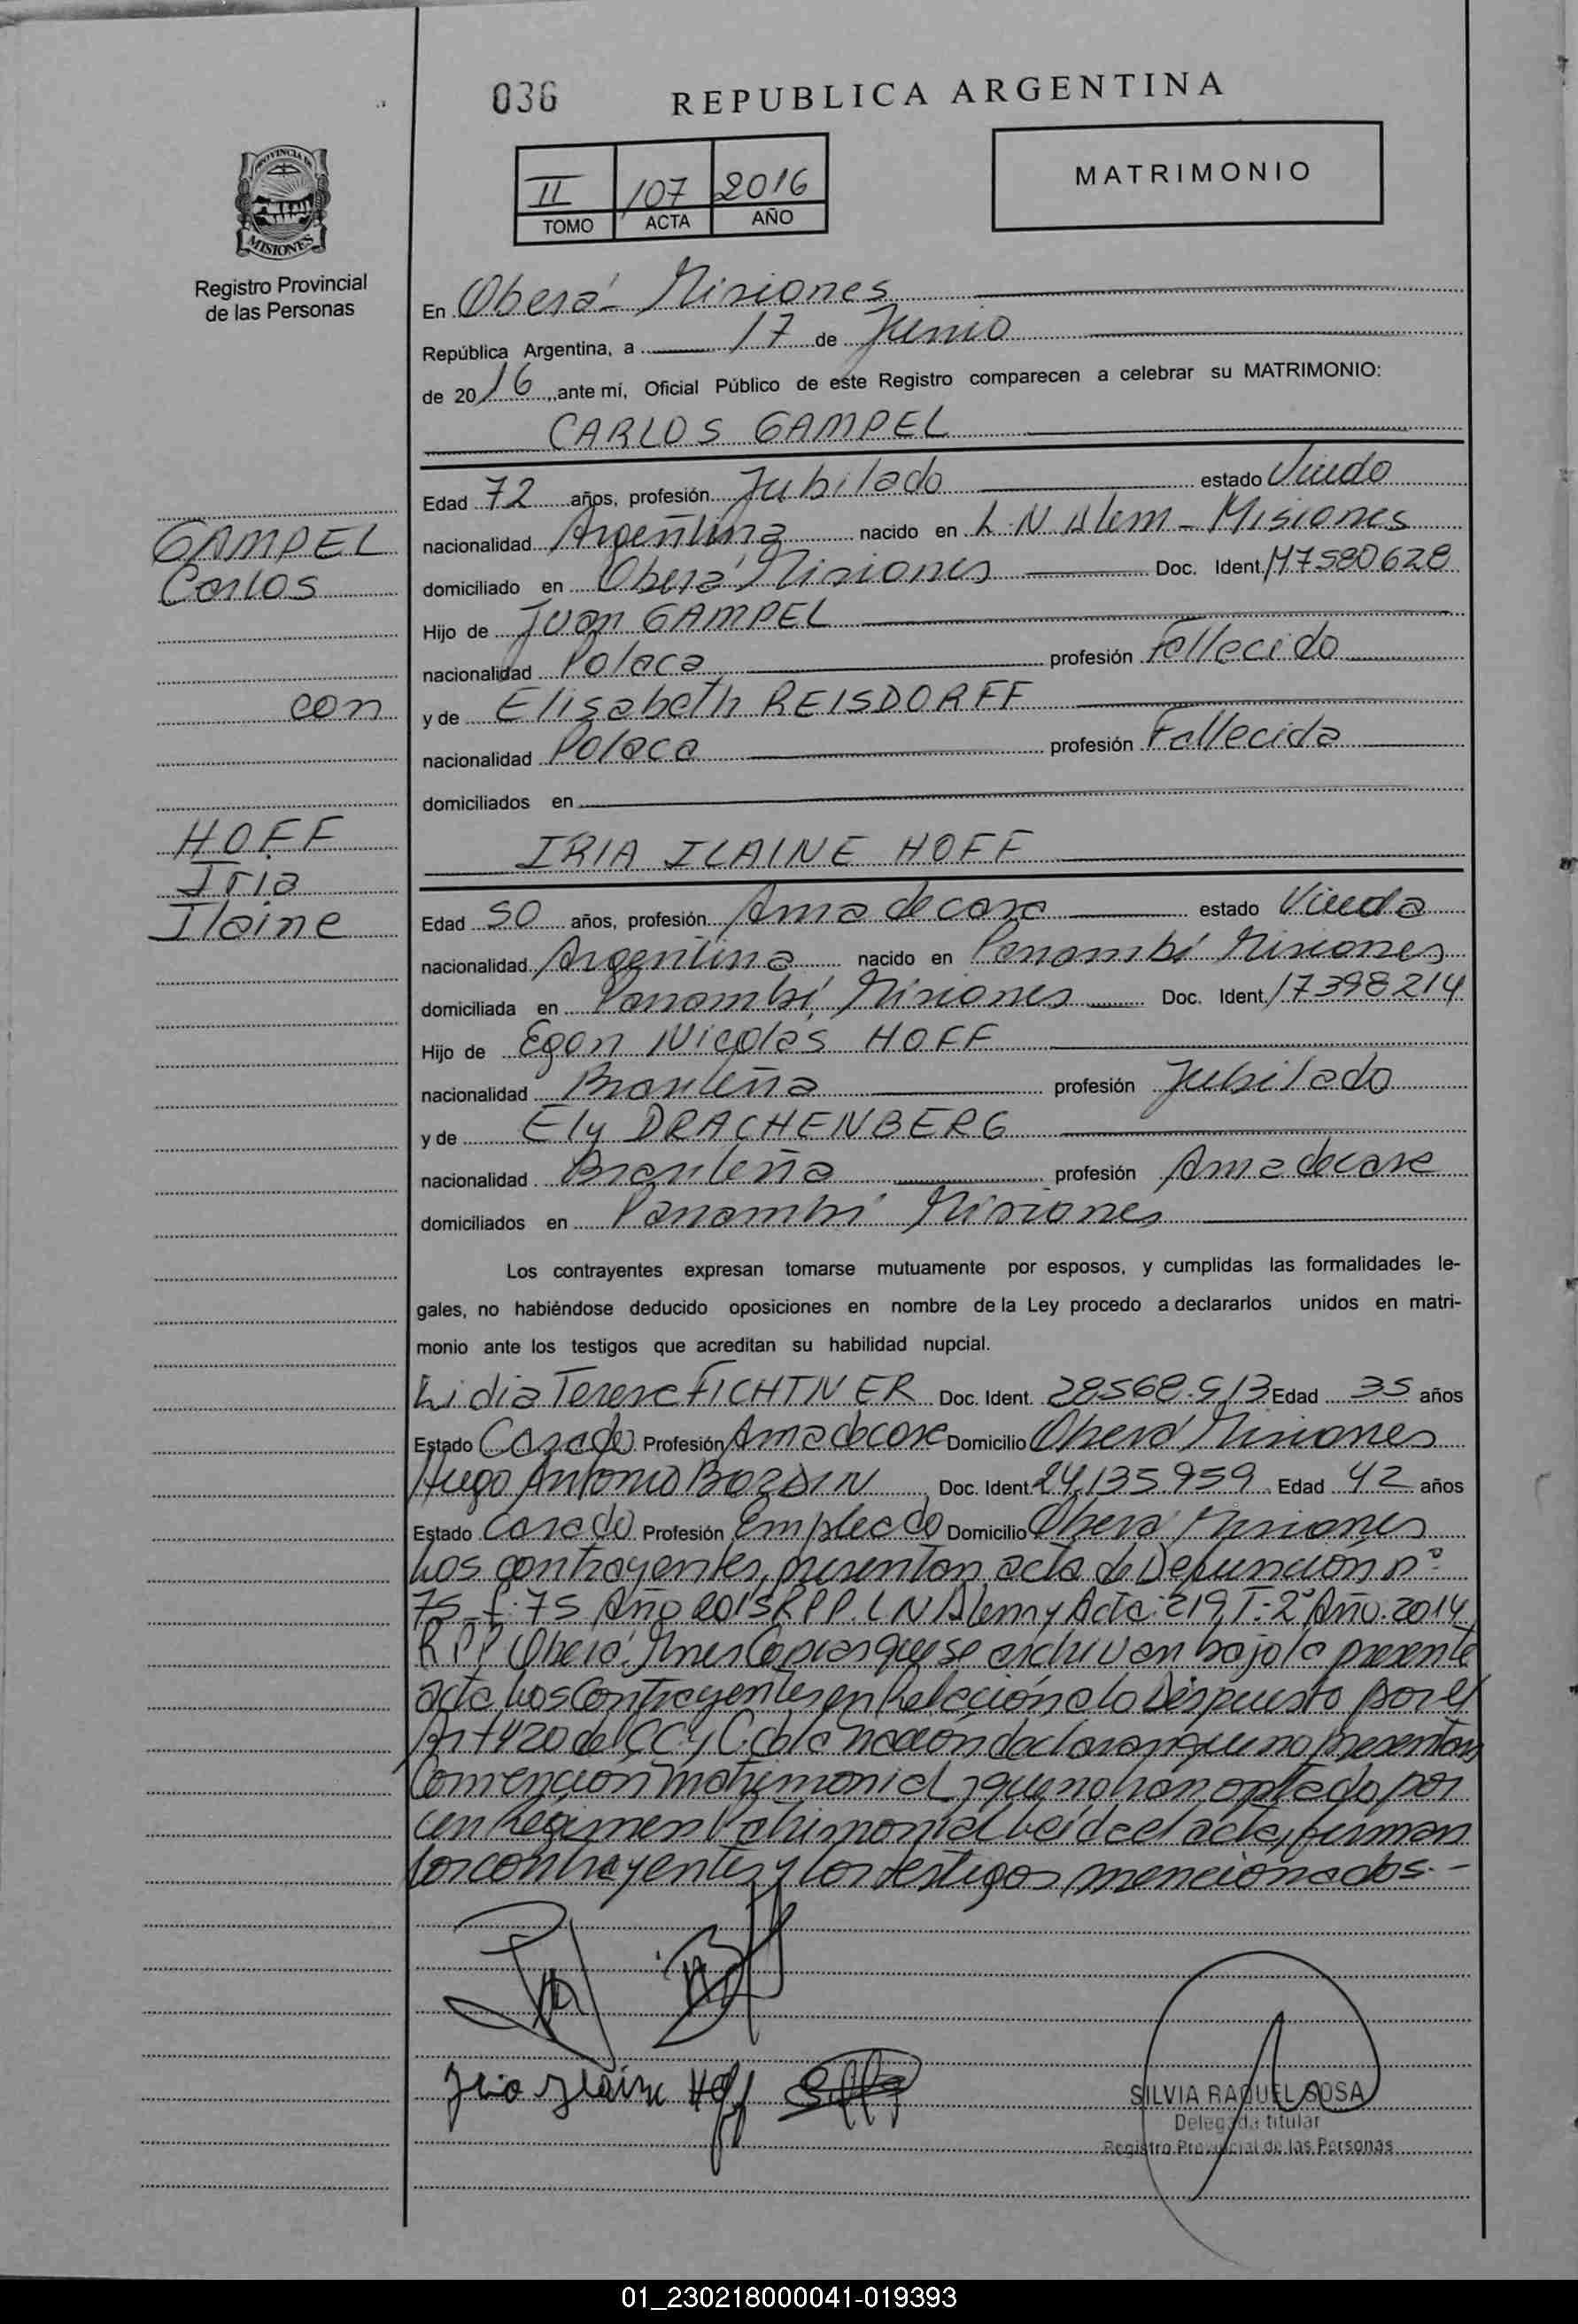 036
REPUBLICA ARGENTINA
II 107 2016
TOMO ACTA AÑO
MATRIMONIO
PROVINCIA DE
MISIONES
Registro Provincial
de las Personas
En Oberá - Misiones
República Argentina, a 17 de Junio
de 2016, ante mí, Oficial Público de este Registro comparecen a celebrar su MATRIMONIO:
CARLOS GAMPEL
Edad 72 años, profesión Jubilado estado Viudo
GAMPEL
nacionalidad Argentina nacido en L.N Alem - Misiones
Carlos
domiciliado en Oberá Misiones Doc. Ident. M7580628
Hijo de Juan GAMPEL
nacionalidad Polaca profesión Fallecido
con
y de Elisabeth REISDORFF
nacionalidad Polaca profesión Fallecida
domiciliados en
HOFF
Iria
Ilaine
IRIA ILAINE HOFF
Edad 50 años, profesión Ama de casa estado Viuda
nacionalidad Argentina nacido en Panambí Misiones
domiciliada en Panambí, Misiones Doc. Ident. 17398214
Hijo de Egon Nicolas HOFF
nacionalidad Brasileña profesión Jubilado
y de Ely DRACHENBERG
nacionalidad Brasileña profesión Ama de casa
domiciliados en Panambí Misiones
Los contrayentes expresan tomarse mutuamente por esposos, y cumplidas las formalidades le-
gales, no habiéndose deducido oposiciones en nombre de la Ley procedo a declararlos unidos en matri-
monio ante los testigos que acreditan su habilidad nupcial.
Lidia Teresa FICHTNER Doc. Ident. 28568.513 Edad 35 años
Estado Casada Profesión Ama de casa Domicilio Oberá Misiones
Hugo Antonio BOZDIN Doc. Ident. 24.135.959 Edad 42 años
Estado Casado Profesión Empleado Domicilio Oberá Misiones
Los contrayentes, presentan acta de Defunción nº
75 - f. 75 Año 2015 RPP. L N Alem y Acta: 219, T: 2º Año. 2014
RPP Oberá. Copias que se archivan bajo la presente
acta, Los Contrayentes en Relación a lo Dispuesto por el
Art 420 del CC. y C. de la Nación declaran que no presentan
Convencion matrimonial, y que no han optado por
un Regimen Patrimonial Leída el acta, firman
los contrayentes y los testigos mencionados.-
Iria Ilaine Hoff
SILVIA RAQUEL SOSA
Delegada titular
Registro Provincial de las Personas
01_230218000041-019393